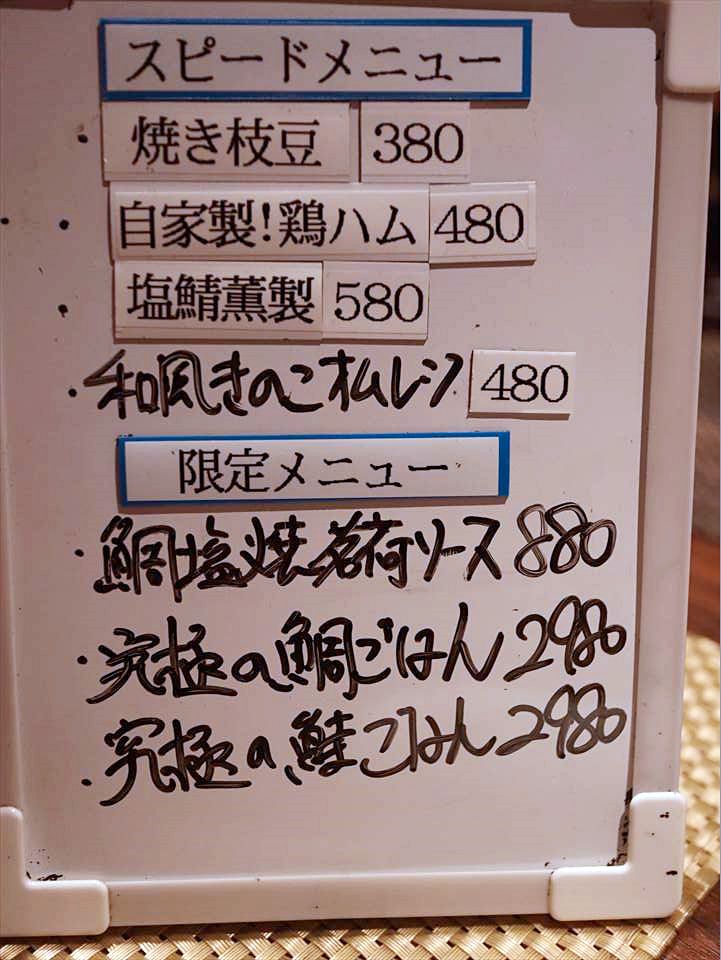 スピードメニュー
焼き枝豆 380
自家製!鶏ハム 480
塩鯖薫製 580
・和風きのこオムレツ 480
限定メニュー
・鯛塩焼茗荷ソース 880
・究極の鯛ごはん 2980
・究極の鮭ごはん 2980